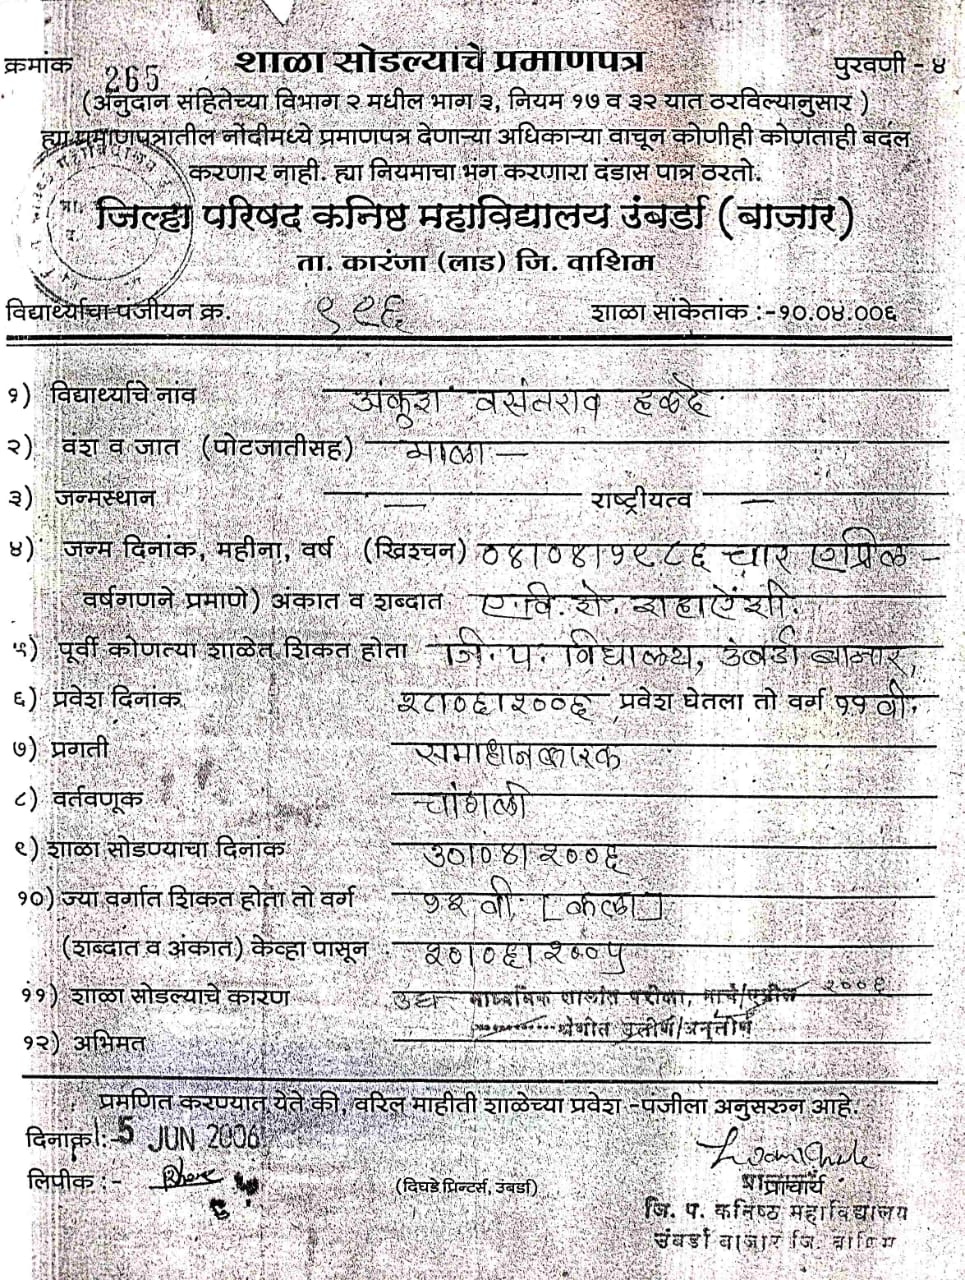 क्रमांक 265 शाळा सोडल्याचे प्रमाणपत्र पुरवणी - ४
(अनुदान संहितेच्या विभाग २ मधील भाग ३, नियम १७ व ३२ यात ठरविल्यानुसार )
ह्या प्रमाणपत्रातील नोंदीमध्ये प्रमाणपत्र देणाऱ्या अधिकाऱ्या वाचून कोणीही कोणताही बदल
करणार नाही. ह्या नियमाचा भंग करणारा दंडास पात्र ठरतो.
जिल्हा परिषद कनिष्ठ महाविद्यालय उंबर्डा (बाजार)
ता. कारंजा (लाड) जि. वाशिम
विद्यार्थ्याचा पंजीयन क्र. ९९६ शाळा सांकेतांक :-१०.०४.००६
१) विद्यार्थ्याचे नांव अंकुश वसंतराव हळदे
२) वंश व जात (पोटजातीसह) माळी —
३) जन्मस्थान — राष्ट्रीयत्व —
४) जन्म दिनांक, महीना, वर्ष (ख्रिश्चन) ०४।०४।१९८६ चार एप्रिल -
वर्षगणने प्रमाणे) अंकात व शब्दात ए.वि.शे. शहाऐंशी.
५) पूर्वी कोणत्या शाळेत शिकत होता जि. प. विद्यालय, उंबर्डा बाजार,
६) प्रवेश दिनांक प्रवेश घेतला तो वर्ग ११ वी.
७) प्रगती समाधानकारक
८) वर्तवणूक चांगली
९) शाळा सोडण्याचा दिनांक ३०।०४।२००६
१०) ज्या वर्गात शिकत होता तो वर्ग १२ वी [कला]
(शब्दात व अंकात) केव्हा पासून २०।०६।२००५
११) शाळा सोडल्याचे कारण उच्च माध्यमिक शालांत परीक्षा, मार्च/एप्रील २००६
श्रेणीत उत्तीर्ण/अनुत्तीर्ण
१२) अभिमत
प्रमणित करण्यात येते की, वरिल माहीती शाळेच्या प्रवेश -पंजीला अनुसरुन आहे.
दिनांक :- 5 JUN 2006
लिपीक :- (दिघडे प्रिन्टर्स, उंबर्डा) प्राचार्य
जि. प. कनिष्ठ महाविद्यालय
उंबर्डा बाजार जि. वाशिम